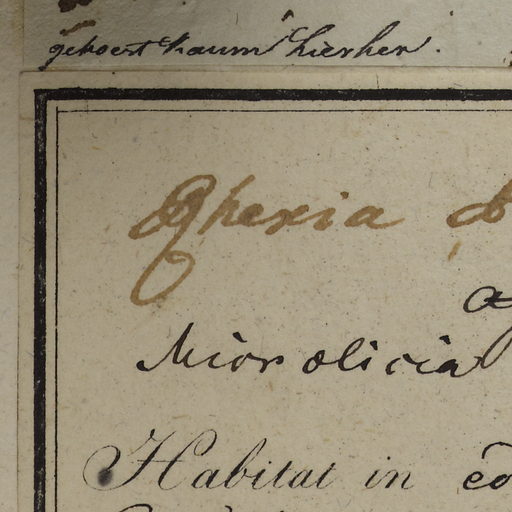 gehoert kaum hierher.
Rhexia
Microlicia
Habitat in